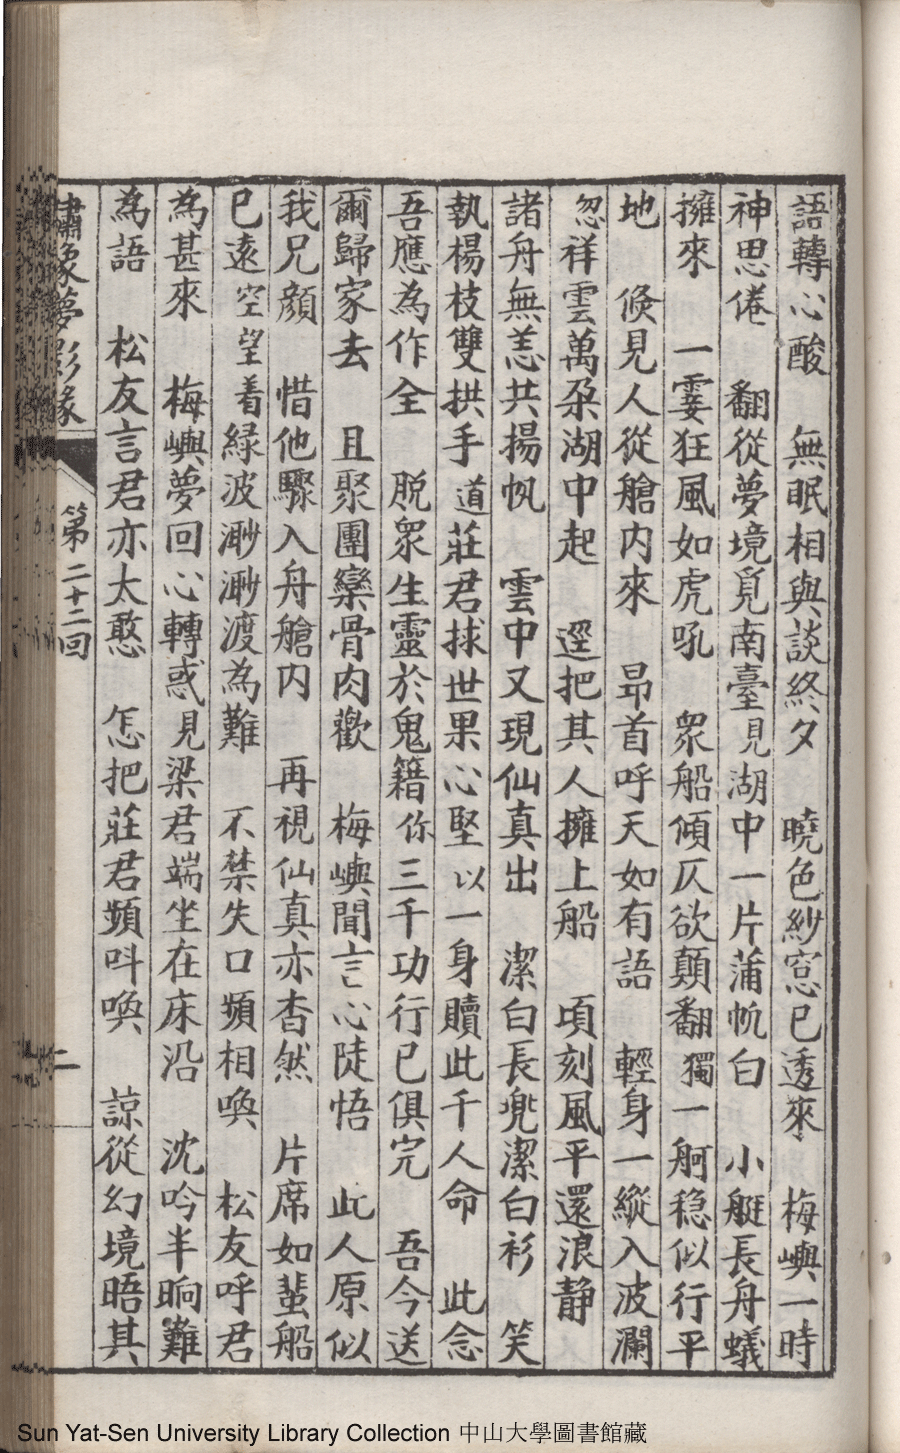 語轉心酸　無眠相與談終夕　曉色紗窓已透來　梅嶼一時
神思倦　翻從夢境覓南臺見湖中一片蒲帆白　小艇長舟蟻
擁來　一霎狂風如虎吼　眾船傾仄欲顛翻獨一舸穏似行平
地　倏見人從艙内來　昂首呼天如有語　輕身一縱入波瀾
忽祥雲萬朶湖中起　逕把其人擁上船　頃刻風平還浪静
諸舟無恙共揚帆　雲中又現仙真出　潔白長兠潔白衫　笑
執楊枝雙拱手　道莊君捄世果心堅以一身贖此千人命　此念
吾應為作全　脱眾生靈於鬼籍你三千功行已俱完　吾今送
爾歸家去　且聚團欒骨肉歡　梅嶼聞言心陡悟　此人原似
我兄顔　惜他驟入舟艙内　再視仙真亦杳然　片席如蜚船
已遠空望着緑波渺渺渡為難　不禁失口頻相喚　松友呼君
為甚來　梅嶼夢回心轉惑見梁君端坐在床沿　沈吟半晌難
為語　松友言君亦太憨　怎把莊君頻呌喚　諒從幻境晤其
夢影緣　第二十二回　二
Sun Yat-Sen University Library Collection 中山大學圖書館藏